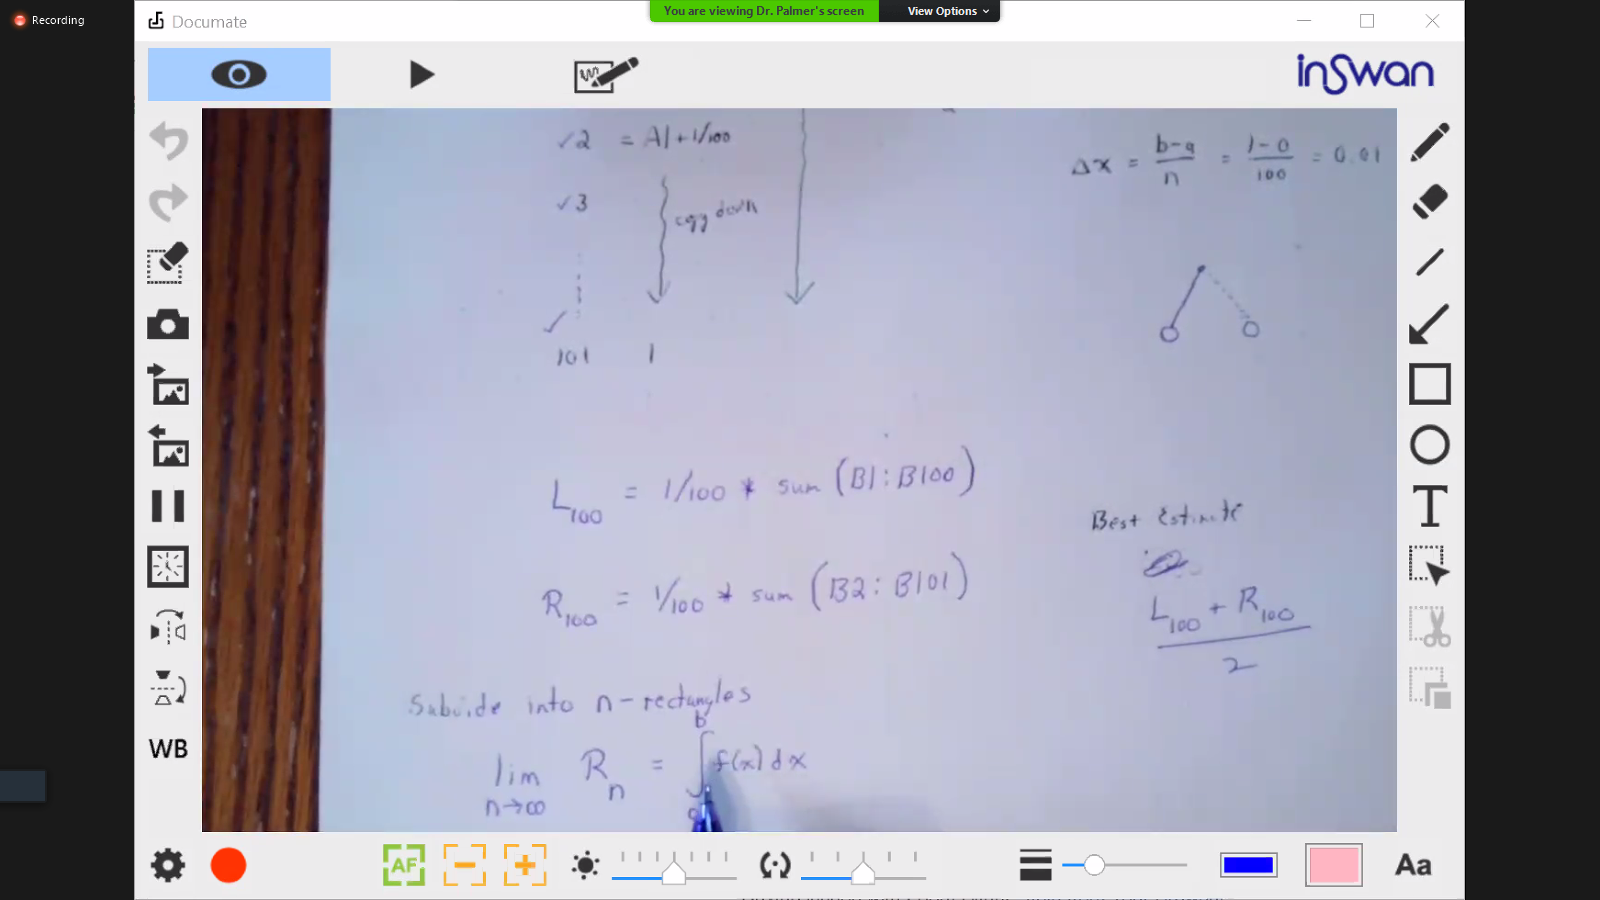 Recording
Documate
You are viewing Dr. Palmer's screen
View Options
inSwan
✓2 = A1+1/100
✓3
copy down
✓
101 1
Δx = b-a/n = 1-0/100 = 0.01
L100 = 1/100 * sum (B1:B100)
R100 = 1/100 * sum (B2:B101)
Best Estimate
L100 + R100
2
Subvide into n-rectangles
lim n→∞ Rn = ∫ b f(x) dx
WB
AF
T
Aa